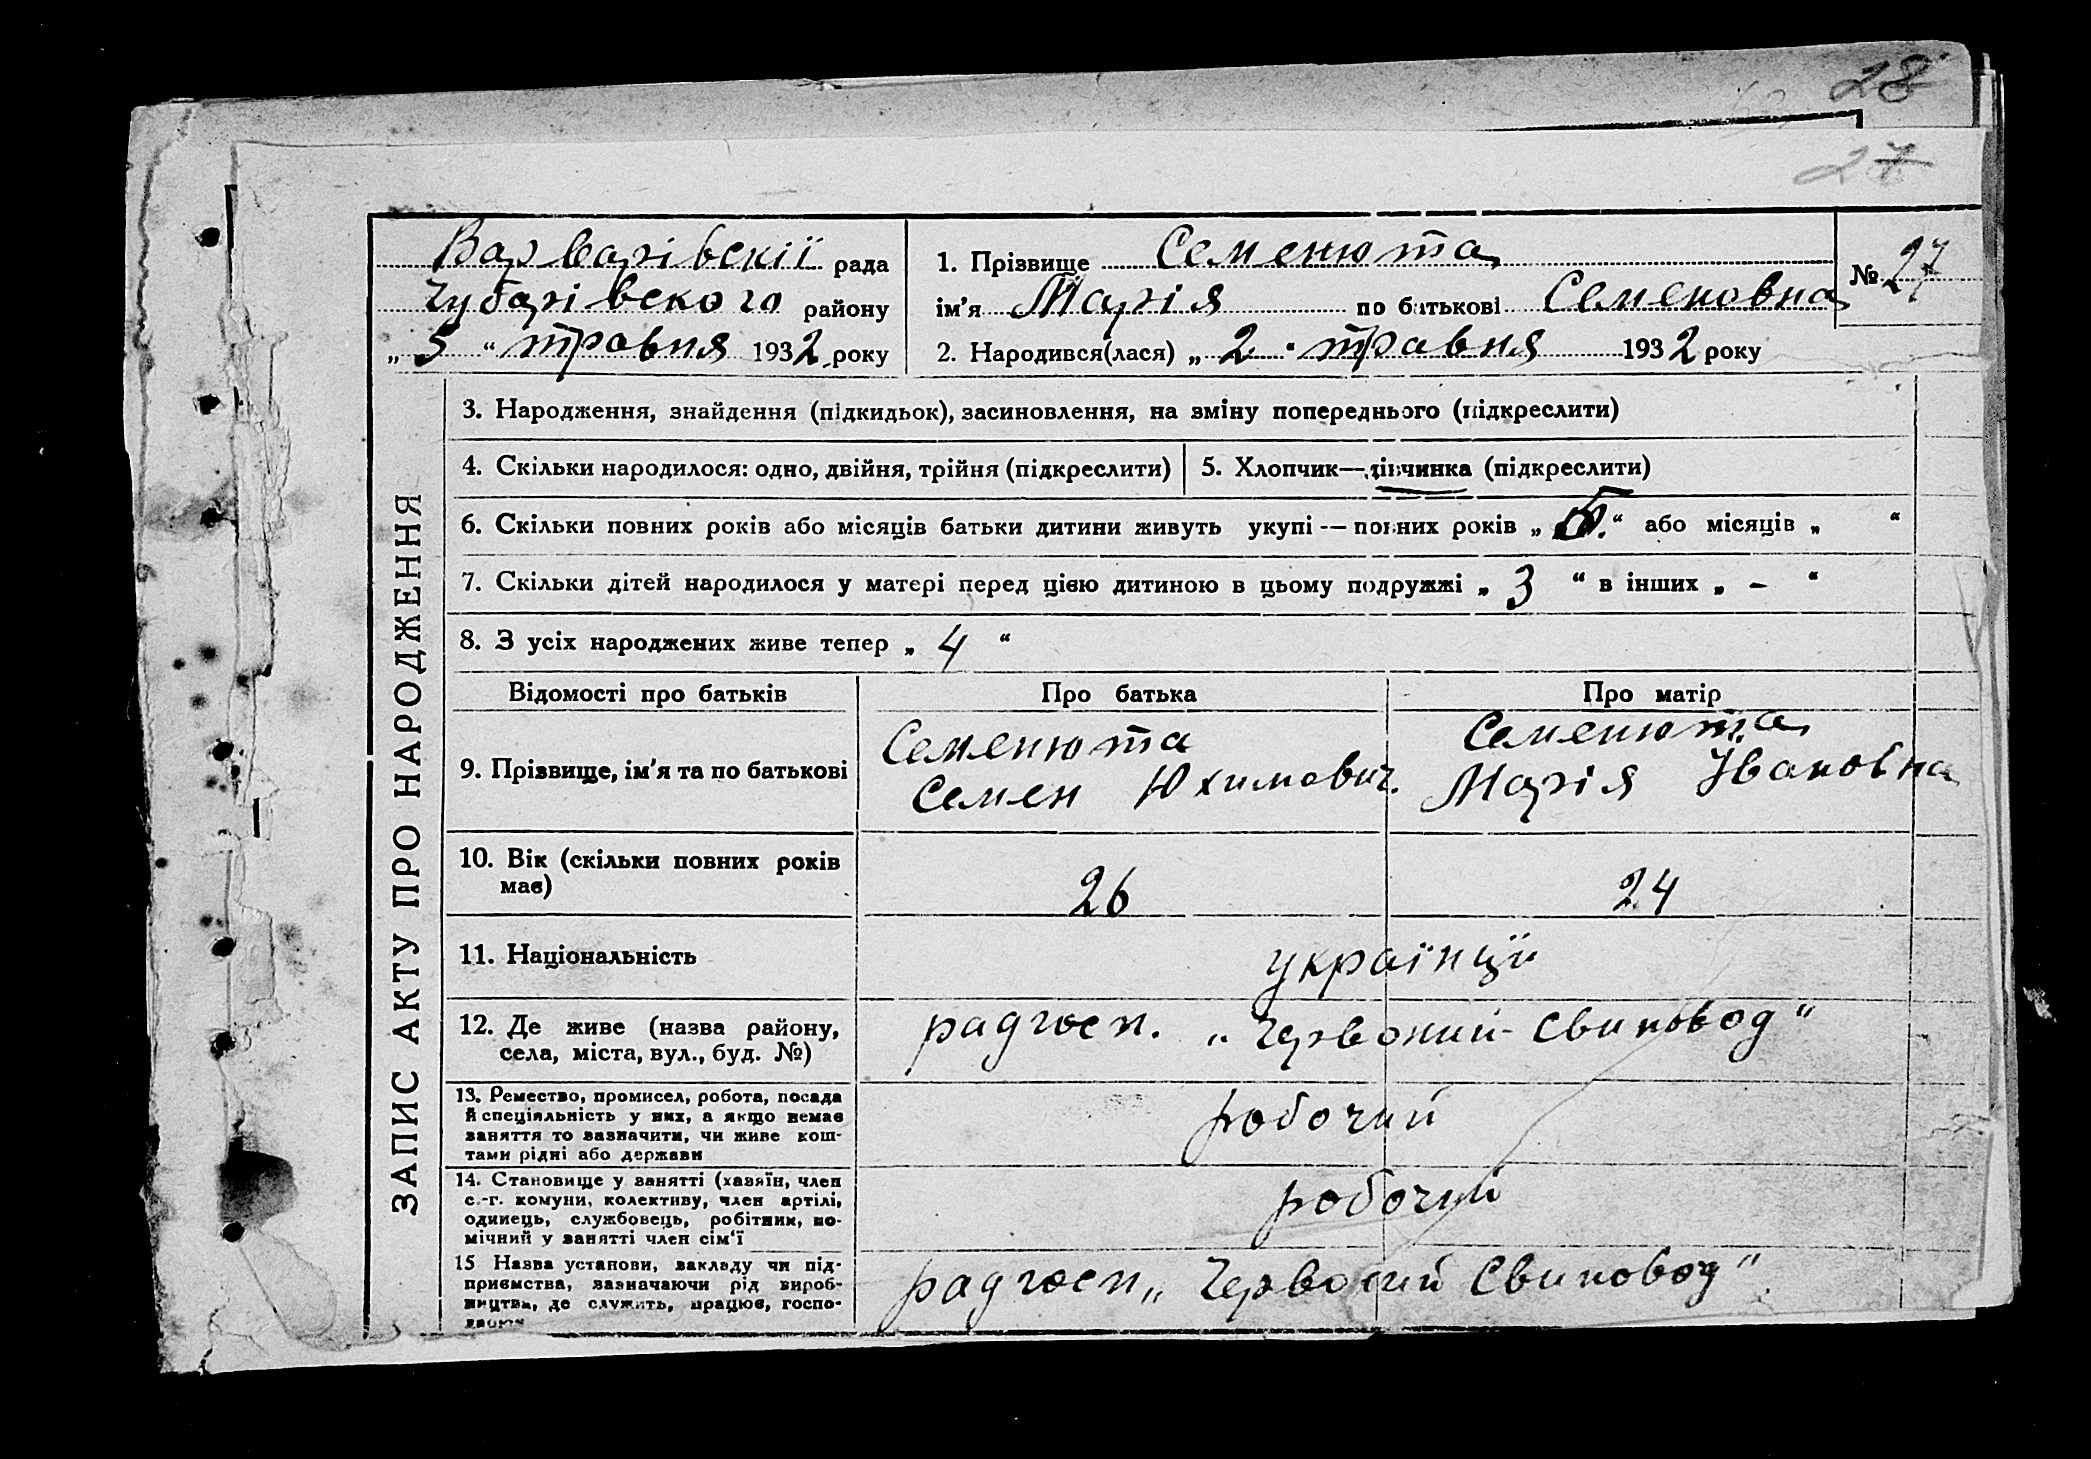 28
27
Варварівскії рада
Чубарівского району
„ 5 “ травня 1932 року
1. Прізвище Семенюта
ім’я Марія по батькові Семеновна
2. Народився(лася) „ 2 “ травня 1932 року
№ 27
ЗАПИС АКТУ ПРО НАРОДЖЕННЯ
3. Народження, знайдення (підкидьок), засиновлення, на зміну попереднього (підкреслити)
4. Скільки народилося: одно, двійня, трійня (підкреслити)
5. Хлопчик—дівчинка (підкреслити)
6. Скільки повних років або місяців батьки дитини живуть укупі — повних років „ “ або місяців „ “
7. Скільки дітей народилося у матері перед цією дитиною в цьому подружжі „ 3 “ в інших „ - “
8. З усіх народжених живе тепер „ 4 “
Відомості про батьків
Про батька
Про матір
9. Прізвище, ім’я та по батькові
Семенюта
Семен Юхимович.
Семенюта
Марія Івановна
10. Вік (скільки повних років
має)
26
24
11. Національність
українці
12. Де живе (назва району,
села, міста, вул., буд. №)
радгосп. „Червоний Свиновод“
13. Ремество, промисел, робота, посада
й спеціяльність у них, а якщо немає
заняття то зазначити, чи живе кош-
тами рідні або держави
робочий
14. Становище у занятті (хазяїн, член
с.-г. комуни, колективу, член артілі,
одинець, службовець, робітник, по-
мічний у занятті член сім’ї
робочий
15 Назва установи, закладу чи під-
приємства, зазначаючи рід вироб-
ництва, де служить, працює, госпо-
дарює
радгосп „Червоний Свиновод“